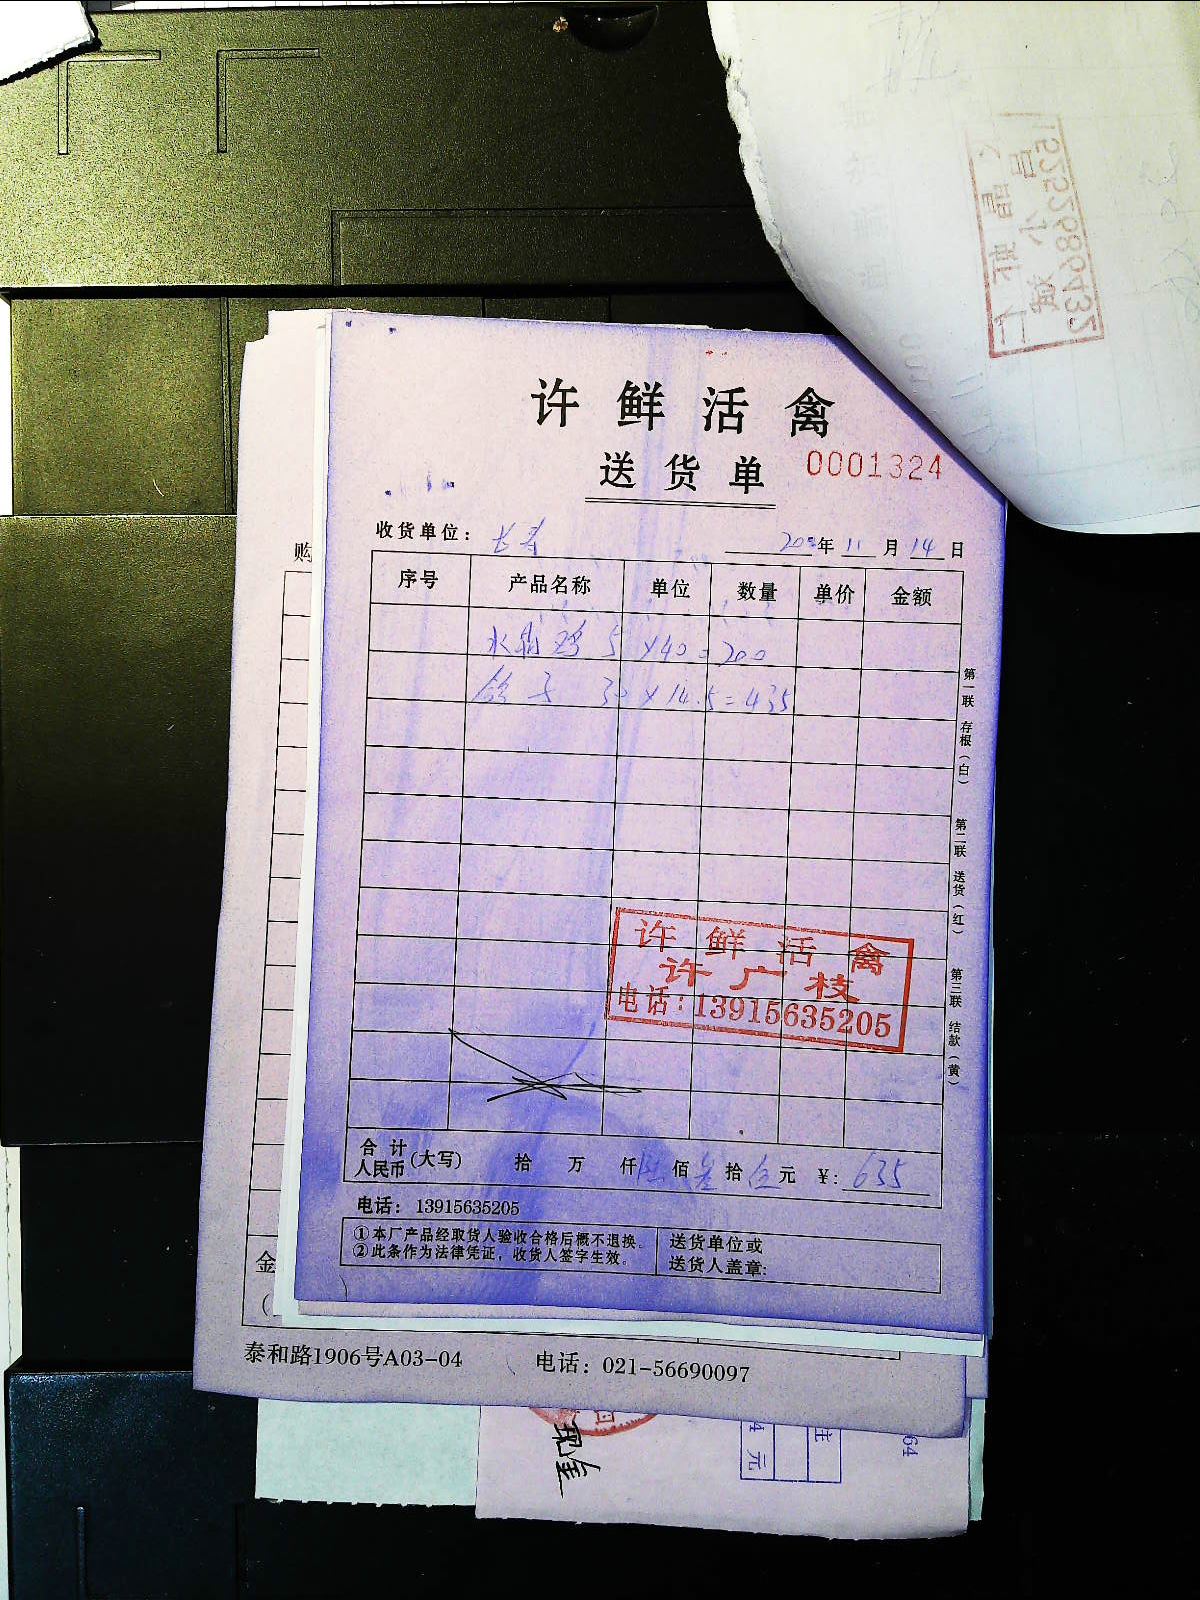 许鲜活禽
送货单
0001324
收货单位：长寿
20 年 11 月 14 日
序号 产品名称 单位 数量 单价 金额
水鸭 5 × 40 = 200
鸽子 30 × 14.5 = 435
第一联 存根（白）
第二联 送货（红）
第三联 结款（黄）
许鲜活禽
许广枝
电话：13915635205
合计人民币（大写） 拾 万 仟 陆 佰 叁 拾 伍 元 ¥：635
电话：13915635205
①本厂产品经取货人验收合格后概不退换。
②此条作为法律凭证，收货人签字生效。
送货单位或
送货人盖章:
购
金
（
泰和路1906号A03-04 电话：021-56690097
现金
4 元
注
64
15252686432